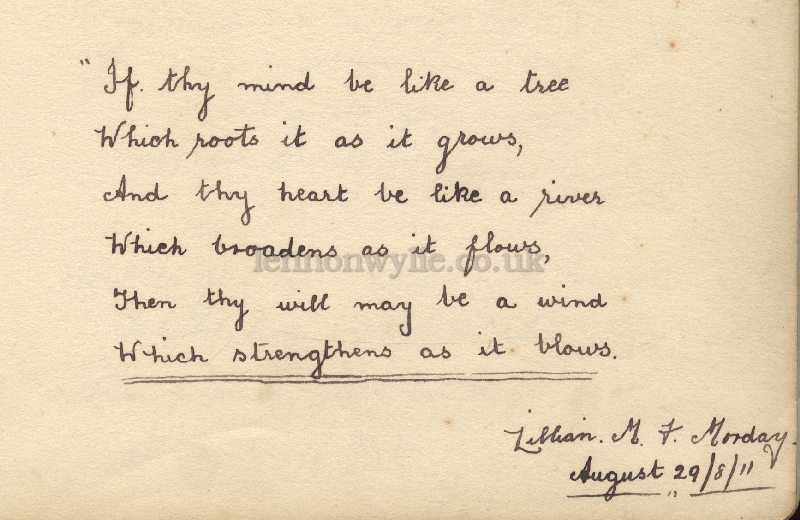 " If. thy mind be like a tree
Which roots it as it grows,
And thy heart be like a river
Which broadens as it flows,
lennonwylie.co.uk
Then thy will may be a wind
Which strengthens as it blows.
Lillian. M. F. Morday.
August 29/8/11